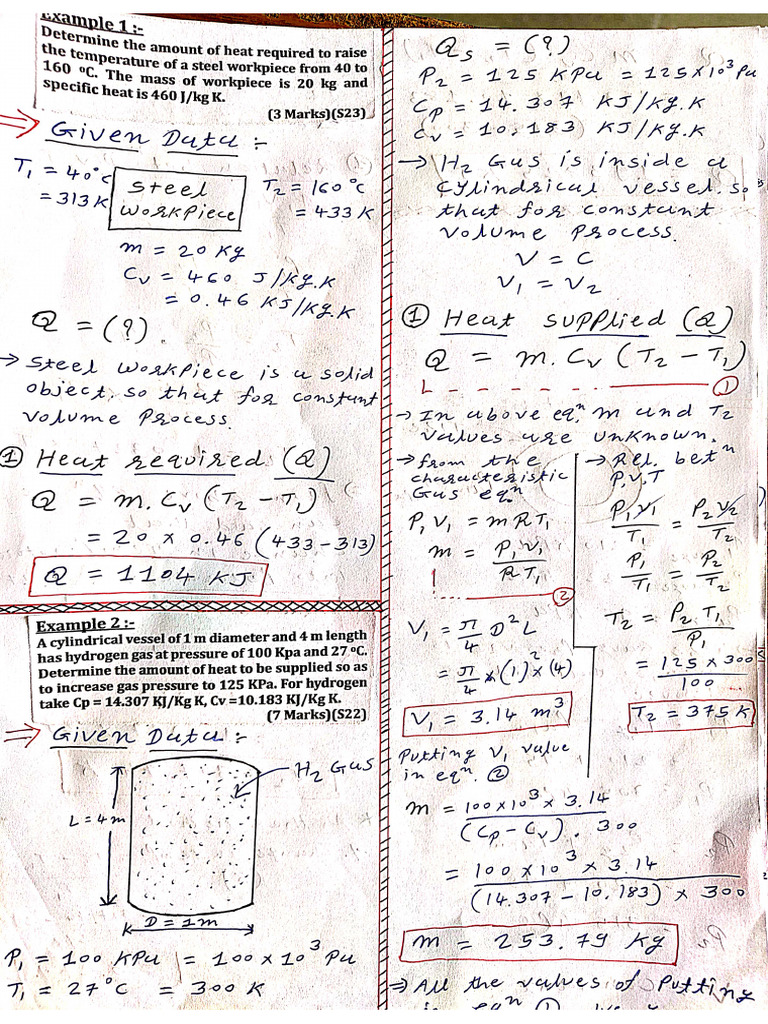 Example 1 :-
Determine the amount of heat required to raise
the temperature of a steel workpiece from 40 to
160 ºC. The mass of workpiece is 20 kg and
specific heat is 460 J/kg K.
(3 Marks)(S23)
⇒ Given Data :-
T₁ = 40°C
= 313 K
Steel
Workpiece
T₂ = 160°C
= 433 K
m = 20 Kg
Cv = 460 J/Kg.K
= 0.46 KJ/Kg.K
Q = (?).
→ Steel workpiece is a solid
object, so that for constant
volume process.
① Heat required (Q)
Q = m.Cv (T₂ - T₁)
= 20 x 0.46 (433-313)
Q = 1104 KJ
Example 2 :-
A cylindrical vessel of 1 m diameter and 4 m length
has hydrogen gas at pressure of 100 Kpa and 27 ºC.
Determine the amount of heat to be supplied so as
to increase gas pressure to 125 KPa. For hydrogen
take Cp = 14.307 KJ/Kg K, Cv =10.183 KJ/Kg K.
(7 Marks)(S22)
⇒ Given Data :-
H₂ Gas
L = 4m
D = 1m
P₁ = 100 KPa = 100 x 10³ Pa
T₁ = 27°C = 300 K
Qs = (?)
P₂ = 125 KPa = 125x10³ Pa
Cp = 14.307 KJ/Kg.K
Cv = 10.183 KJ/Kg.K
→ H₂ Gas is inside a
cylindrical vessel. so
that for constant
volume process.
V = C
V₁ = V₂
① Heat supplied (Q)
Q = m.Cv (T₂ - T₁)
①
→ In above eqⁿ. m and T₂
values are unknown.
→ from the
characteristic
Gas eqⁿ.
P₁V₁ = mRT₁
m = P₁V₁ / RT₁
②
V₁ = π/4 D²L
= π/4 x (1)² x (4)
V₁ = 3.14 m³
→ Rel. betⁿ
P,V,T
P₁V₁/T₁ = P₂V₂/T₂
P₁/T₁ = P₂/T₂
T₂ = P₂T₁/P₁
= 125 x 300 / 100
T₂ = 375 K
Putting V₁ value
in eqⁿ. ②
m = 100x10³ x 3.14 / (Cp - Cv). 300
= 100 x 10³ x 3.14 / (14.307 - 10.183) x 300
m = 253.79 Kg
⇒ All the values of Putting
eqⁿ ①